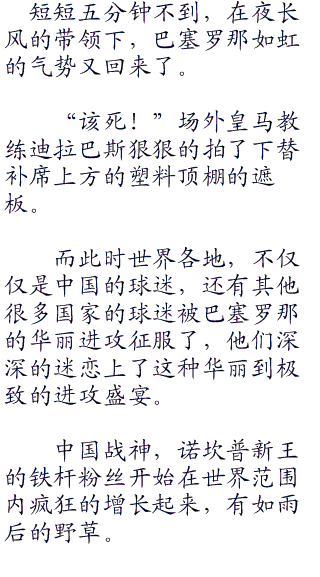 短短五分钟不到，在夜长
风的带领下，巴塞罗那如虹
的气势又回来了。
“该死！”场外皇马教
练迪拉巴斯狠狠的拍了下替
补席上方的塑料顶棚的遮
板。
而此时世界各地，不仅
仅是中国的球迷，还有其他
很多国家的球迷被巴塞罗那
的华丽进攻征服了，他们深
深的迷恋上了这种华丽到极
致的进攻盛宴。
中国战神，诺坎普新王
的铁杆粉丝开始在世界范围
内疯狂的增长起来，有如雨
后的野草。